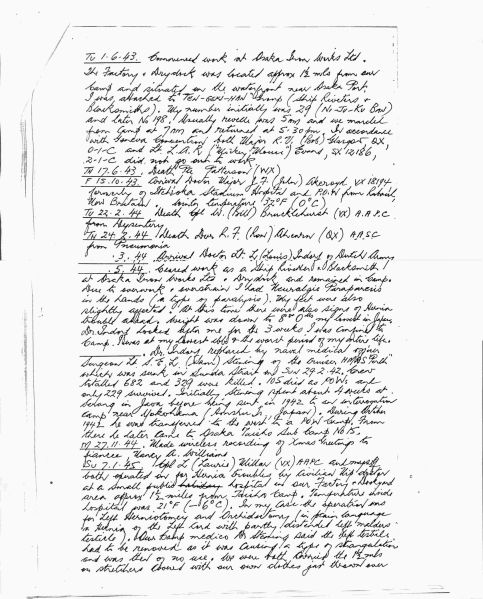 Tu 1.6.43. Commenced work at Osaka Iron Works Ltd.
The Factory & Drydock was located approx 1½ mls from our
Camp and situated on the waterfront near Osaka Port.
I was attached to TEN-GEN-HAN Group (Ship Riveters &
Blacksmiths). My number initially was 29 (Ni-Ju-Ku Ban)
and later No 198. Usually reveille was 5am and we marched
from Camp at 7am and returned at 5.30pm. In accordance
with Geneva Convention both Major R.V. (Bob) Glasgow QX,
O-I-C and Lt L.A.R. (Mickey Mouse) Evans, SX12186,
2-I-C did not go out to work.
Tu 17.6.43. Death Pte Patterson (WX)
F 15.10.43. Arrival Doctor Major J.F. (John) Akeroyd VX18194
formerly of Ichioka Stadium Hospital and P.O.W. from Rabaul,
New Britain. temperature 32°F (0°C)
Tu 22.2.44 Death Cpl W. (Bill) Bruckthurst (VX) A.A.P.C.
from Dysentery
Th 24.2.44 Death Dvr R.F. (Ron) Atherton (QX) AASC
from Pneumonia
.3.44 Arrival Doctor Lt L (Louis) Indorf of Dutch Army
.5.44 Ceased work as a Ship Riveter & Blacksmith
at Osaka Iron Works Ltd & Drydock and remained in Camp.
Due to overwork & overstrain I had Neuralgic Paraparesis
in the hands (a type of paralysis). My feet were also
slightly affected. At this time there were also signs of Hernia
trouble already. Weight was down to my lowest in Japan
Dr. Indorf looked after me for the 3 weeks I was confined to
Camp. I was at my lowest ebb & the worst period of my entire life.
Dr. Indorf replaced by naval medical officer
Surgeon Lt S.E.L. (Sam) Stening of the Cruiser HMAS "Perth"
which was sunk in Sunda Strait on Sun 29.2.42. Crew
totalled 682 and 329 were killed. 105 died as POWs and
only 229 survived. Initially Stening spent about 4 weeks at
Serang in Java before being sent in 1942 to an interrogation
Camp near Yokohama (Honshu Is, Japan). During October
1942 he was transferred to the west to a POW Camp. From
there he later came to Osaka Taisho Sub Camp No 15.
M 27.11.44. Made wireless recording of Xmas Greetings to
fiancee Nancy A. Williams
Su 7.1.45. Cpl L (Laurie) Millar (VX) AAPC and myself
both operated on for Hernia troubles by civilian Nip doctor
at a small public hospital in our Factory & Dockyard
area approx 1½ miles from Taisho Camp. Temperature inside
hospital was 21°F (-6°C). In my case the operation was
for Left Herniotomy and Orchidectomy (in plain language
a Hernia of the Left Cord with partly distended left
testicle). Our Camp medico Dr Stening said the left testicle
had to be removed as it was causing a type of strangulation
and was then of no use. We were both carried the 1½ mls
on stretchers covered with our own clothes just thrown over